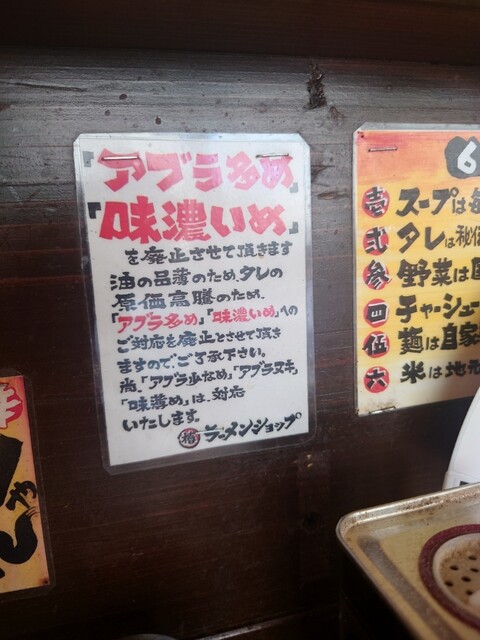 『アブラ多め』
『味濃いめ』
を廃止させて頂きます
油の品薄のため、タレの
原価高騰のため、
「アブラ多め」「味濃いめ」への
ご対応を廃止とさせて頂き
ますので、ご了承下さい。
尚、「アブラ少なめ」「アブラヌキ」
「味薄め」は、対応
いたします。
椿 ラーメンショップ
6
壱 スープは
弐 タレは秘伝
参 野菜は国
四 チャーシュー
伍 麺は自家
六 米は地元